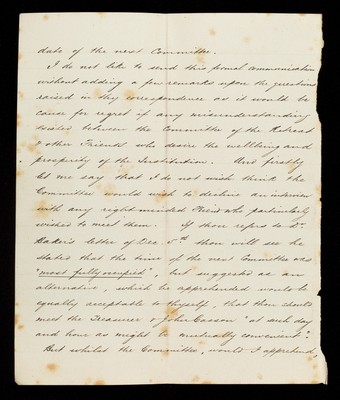 date of the next Committee.
I do not like to send this formal communication
without adding a few remarks upon the questions
raised in thy correspondence as it would be
cause for regret if any misunderstanding
existed between the Committee of the Retreat
& other Friends who desire the wellbeing and
prosperity of the Institution. And firstly
let me say that I do not wish think the
Committee would wish to decline an interview
with any right minded Friend who particularly
wished to meet them. If thou refers to Dr.
Baker's letter of Dec 5th thou will see he
states that the time of the next Committee was
"most fully occupied", but suggested as an
alternative, which he apprehended would be
equally acceptable to thyself, that thou should
meet the Treasurer & John Casson "at such day
and hour as might be mutually convenient".
But whilst the Committee, would I apprehend,